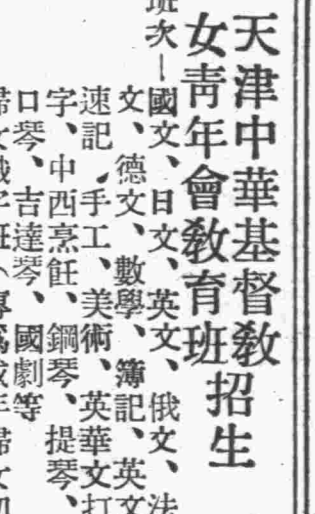 天津中華基督敎
女靑年會敎育班招生
班次—國文、日文、英文、俄文、法
文、德文、數學、簿記、英文
速記、手工、美術、英華文打
字、中西烹飪、鋼琴、提琴、
口琴、吉達琴、國劇等